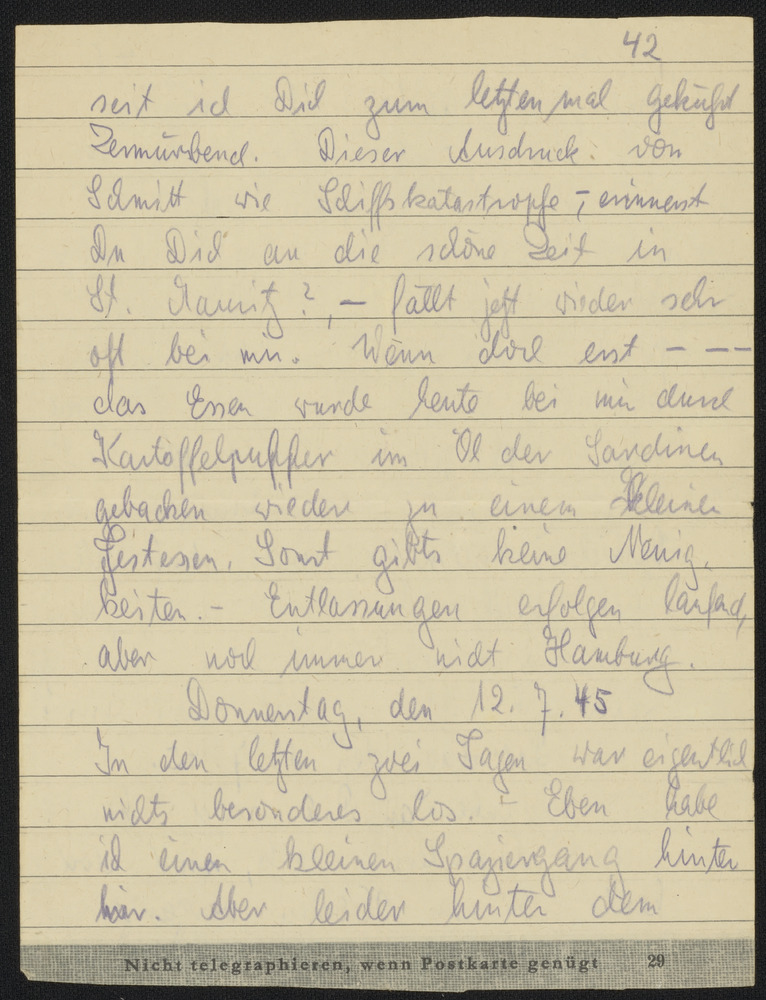 42
seit ich Dich zum letzten mal geküßt
Zermürbend. Dieser Ausdruck von
Schmitt wie Schiffskatastrophe, – erinnerst
Du Dich an die schöne Zeit in
St. Mauritz?, – fällt jetzt wieder sehr
oft bei mir. Wenn doch erst – – –
das Essen wurde heute bei mir durch
Kartoffelpuffer im Öl der Sardinen
gebacken wieder zu einem kleinen
Festessen. Sonst gibts keine Neuig-
keiten. – Entlassungen erfolgen laufend,
aber noch immer nicht Hamburg.
Donnerstag, den 12. 7. 45
In den letzten zwei Tagen war eigentlich
nichts besonderes los. – Eben habe
ich einen kleinen Spaziergang hinter
mir. Aber leider hinter dem
Nicht telegraphieren, wenn Postkarte genügt 29